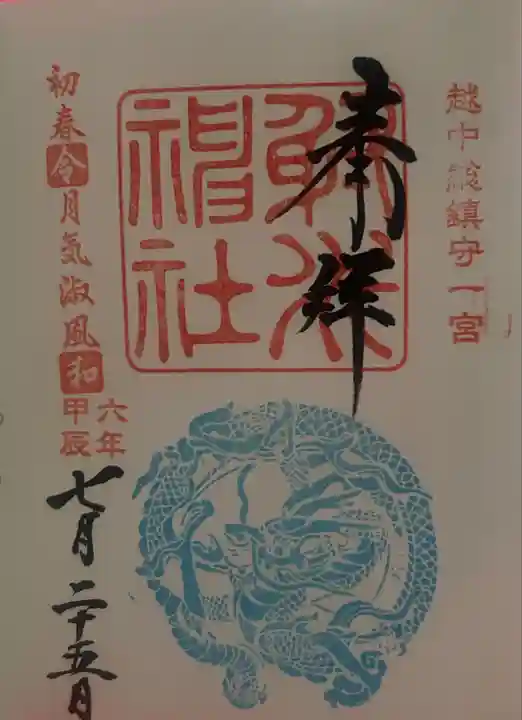 越中総鎮守一宮
奉拝
射水
神社
初春令月気淑風和
六年
甲辰
七月二十五日